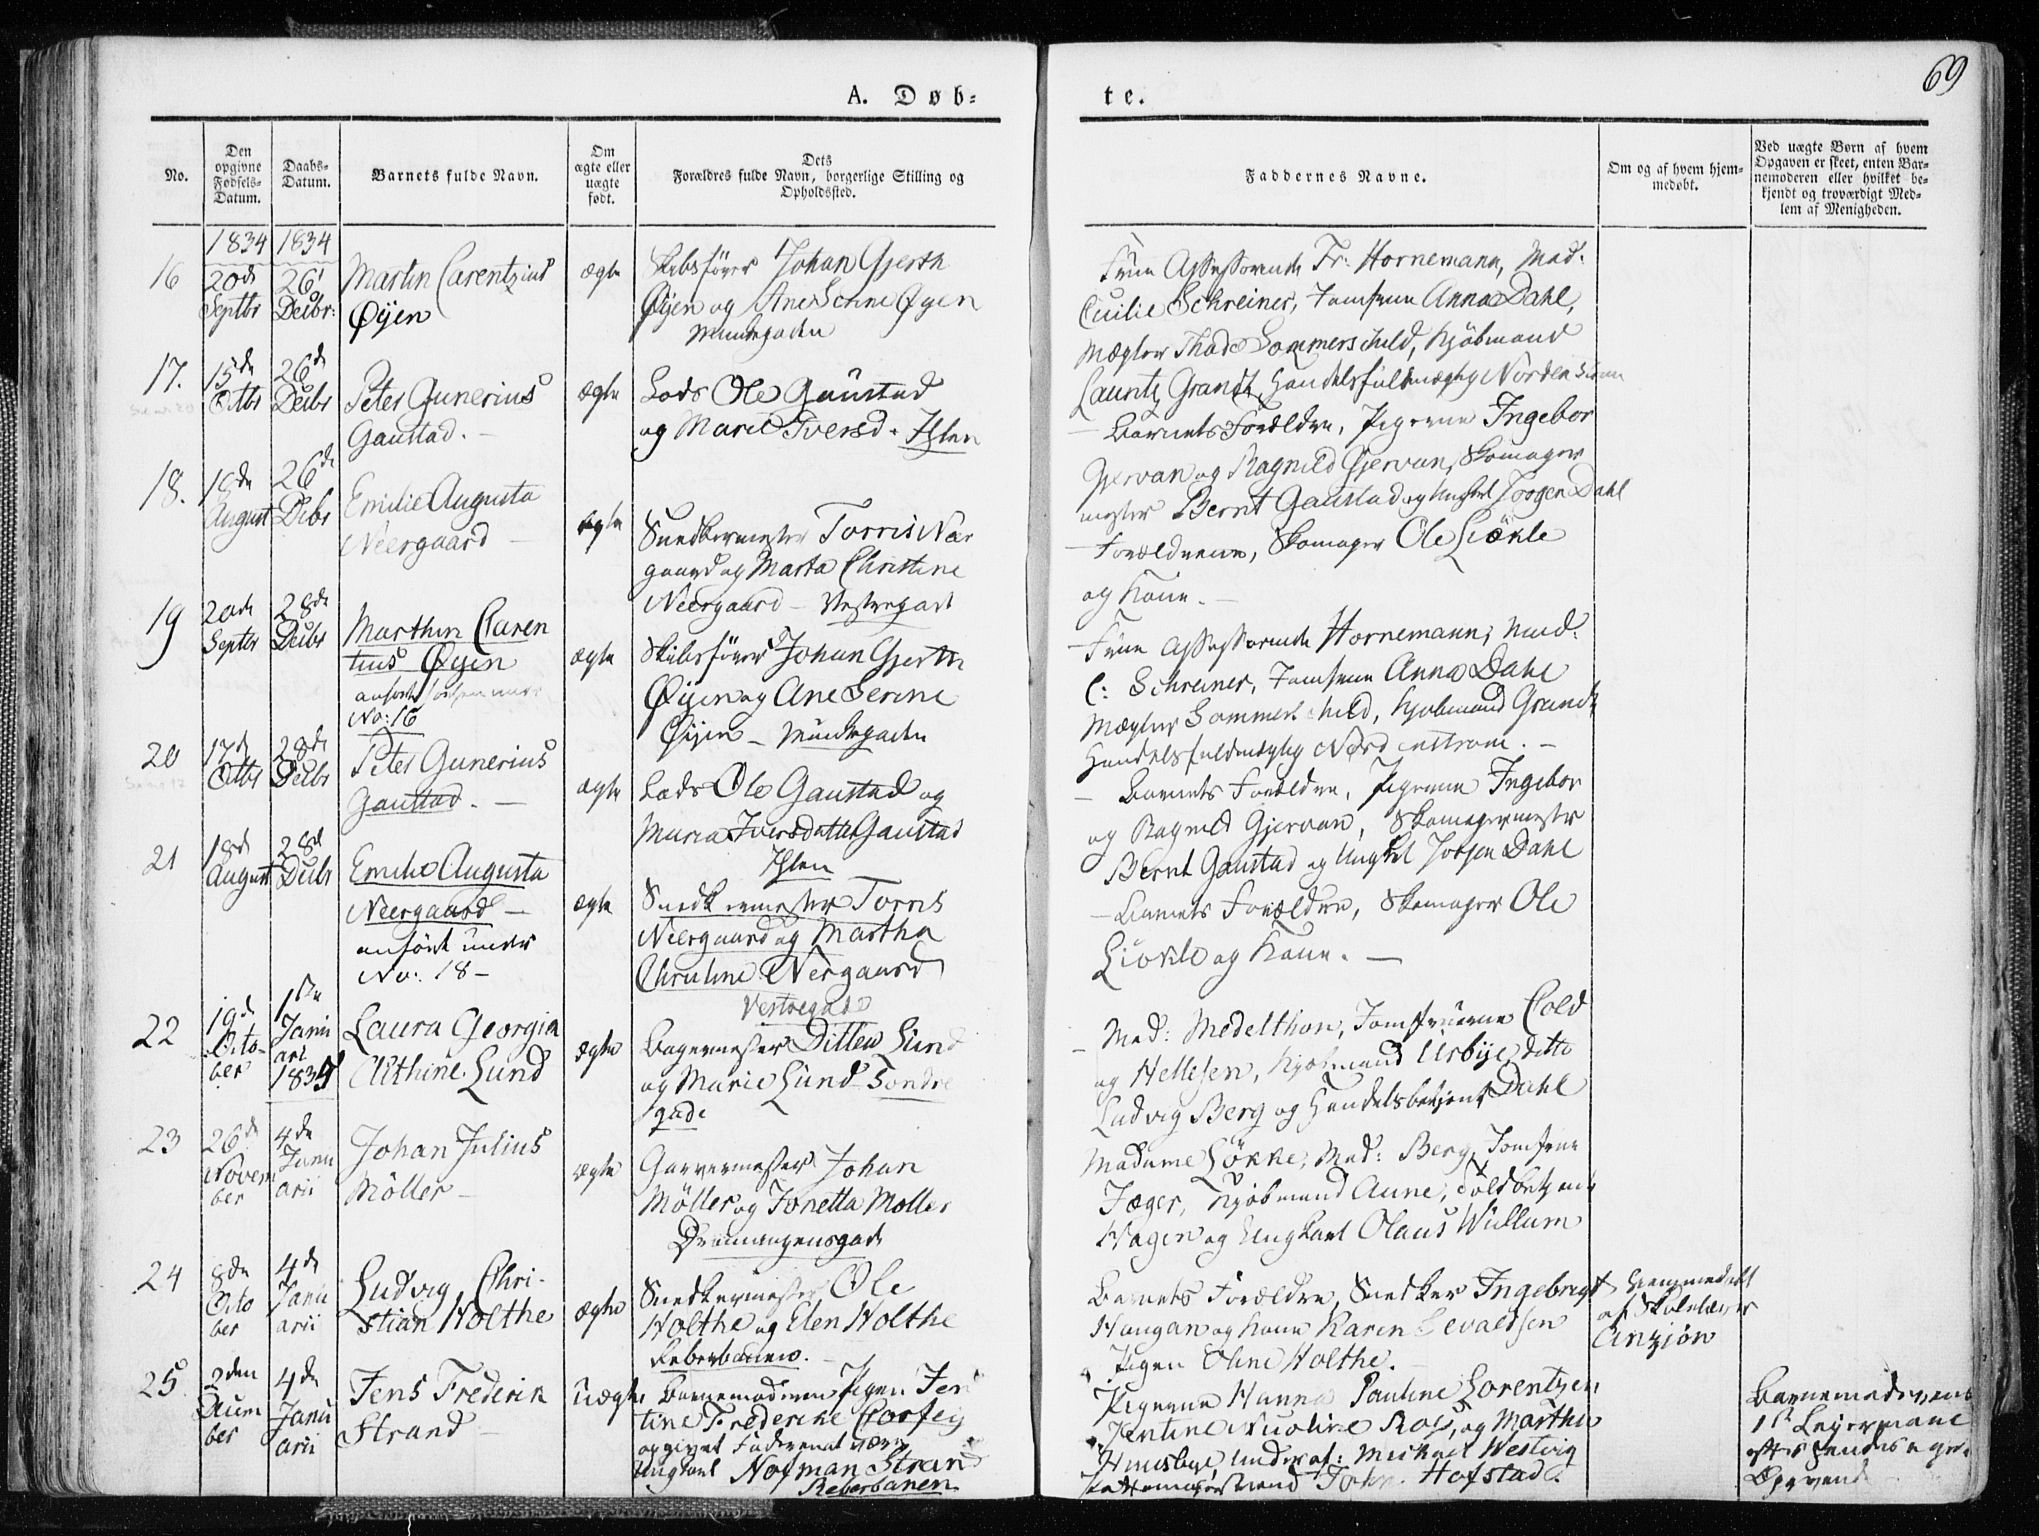 69
A. Døb-
te.
No.
Den opgivne Fødsels-Datum.
Daabs-Datum.
Barnets fulde Navn.
Om ægte eller uægte født.
Dets Forældres fulde Navn, borgerlige Stilling og Opholdssted.
Faddernes Navne.
Om og af hvem hjem-
medøbt.
Ved uægte Børn af hvem
Opgaven er skeet, enten Bar-
nemoderen eller hvilket be-
kjendt og troværdigt Med-
lem af Menigheden.
1834 1834
16
20de Septbr
26' Decbr:
Martin Carentzius
Øyen
ægte
Skibsfører Johan Gjerth
Øyen og Ane Serine Øyen
Munkegaden
Frue Assessorinde Fr: Hornemann, Mad:
Cecilie Schreiner, Jomfrue Anna Dahl,
Mægler Thade Sommerschild, Kjøbmand
Lauritz Grandt, Handelsfuldmægtig Nordenstrøm
17.
15de Octbr
26de Decbr
Peter Gunerius
Gaustad.
ægte
Lods Ole Gaustad
og Marit Iversd. Ihlen
Barnets Forældre, Pigerne Ingebor
Gjervan og Ragnild Gjervan, Skomager
mester Bernt Gaustad og Ungkarl Jørgen Dahl
18.
18de August
26de Decbr
Emilie Augusta
Neergaard
ægte
Snedkermester Torris Neer
gaard og Marta Christine
Neergaard - Vestregade
Forældrene, Skomager Ole Liøkle
og Kone.
19
20de Septbr
28de Decbr
Marthin Claren
tius Øyen
anført under
No: 16
ægte
Skibsfører Johan Gjerth
Øyen og Ane Serine
Øyen - Munkegaden
Frue Assessorinde Hornemann, Mad:
C: Schreiner, Jomfrue Anna Dahl
Mægler Sommerschild, Kjøbmand Grandt
Handelsfuldmægtig Nordenstrøm.
20
17de Octbr
28de Decbr
Peter Gunerius
Gaustad.
ægte
Lods Ole Gaustad og
Maria Iversdatter Gaustad
Ihlen
Barnets Forældre, Pigerne Ingebor
og Ragnild Gjervan, Skomagermester
Bernt Gaustad og Ungkarl Jørgen Dahl
21
18de August
28de Decbr
Emilie Augusta
Neergaard
anført under
No: 18
ægte
Snedkermester Torris
Neergaard og Martha
Christine Neergaard
Vestregade
Barnets Forældre, Skomager Ole
Liøkle og Kone.
22
19de Octo-
ber
1ste Janu
ari
1835
Laura Georgia
Elithine Lund
ægte
Bagermester Ditlew Lund
og Marie Lund Søndre
gade
Mad: Medelthon, Jomfruerne Cold
og Hellesen, Kjøbmand Usbye, ditto
Ludvig Berg og Handelsbetjent Dahl
23
26de Novem
ber
4de Janu
arii
Johan Julius
Möller
ægte
Garvermester Johan
Möller og Jonetta Moller
Dronningensgade
Madame Løkke, Mad: Berg, Jomfrue
Jæger, Kjøbmand Aune, Toldbetjent
Hagen og Ungkarl Olaus Wullum
24
8de Octo
ber
4de Janu
arii
Ludvig Chri-
stian Holthe
ægte
Snedkermester Ole
Holthe og Elen Holthe
Reberbanen.
Barnets Forældre, Snedker Ingebrigt
Haugan og Kone Karen Sevaldsen
Pigen Oline Holthe.
Hjemmedøbt
af Skolelærer
Anzjøn
25
2den Decem
ber
4de Janu
arii
Jens Frederik
Strand
Uægte
Barnemoderen Pigen Jen
tine Frederike
opgivet Fader
Ungkarl Nofman Strand
Reberbanen
Pigerne Hanna Pauline Lorentzen
Jentine Nicoline og Martha
Michael Westvig
John Hofstad.
Barnemoderens
1ste Leiermaal
efter hendes egen
Opgivende